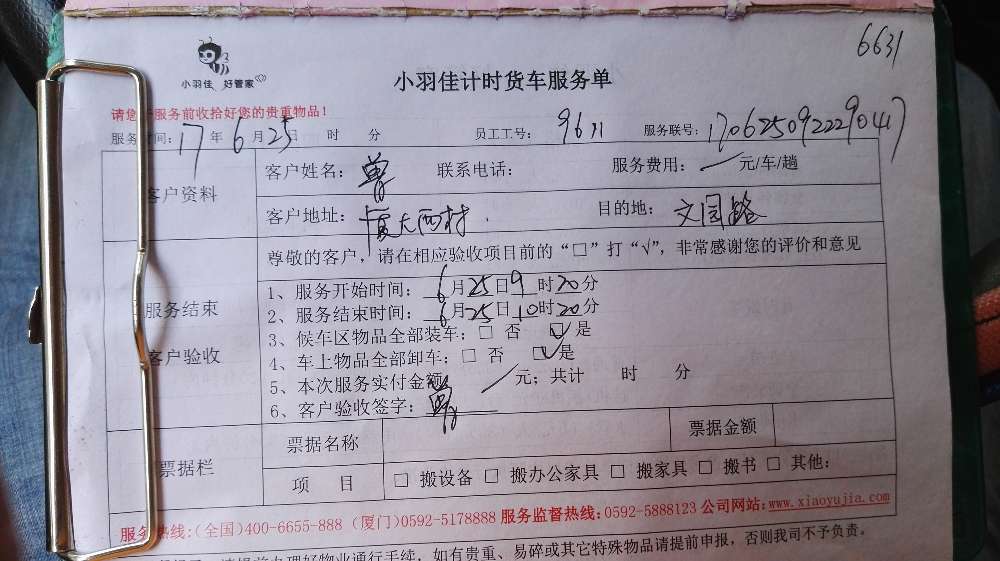 6631
小羽佳 好管家
小羽佳计时货车服务单
请您在服务前收拾好您的贵重物品！
服务时间：17年6月25日 时 分 员工工号：9611 服务联号：1706250922290417
客户资料
客户姓名：曾 联系电话： 服务费用： 元/车/趟
客户地址：厦大西村 目的地：文园路
尊敬的客户，请在相应验收项目前的“□”打“√”，非常感谢您的评价和意见
服务结束
客户验收
1、服务开始时间：6月25日9时20分
2、服务结束时间：6月25日10时20分
3、候车区物品全部装车：□ 否 ☑是
4、车上物品全部卸车：□ 否 ☑是
5、本次服务实付金额 元；共计 时 分
6、客户验收签字：曾
票据栏
票据名称 票据金额
项 目 □ 搬设备 □ 搬办公家具 □ 搬家具 □ 搬书 □ 其他：
服务热线：(全国)400-6655-888 (厦门)0592-5178888 服务监督热线：0592-5888123 公司网站：www.xiaoyujia.com
请提前办理好物业通行手续，如有贵重、易碎或其它特殊物品请提前申报，否则我司不予负责。